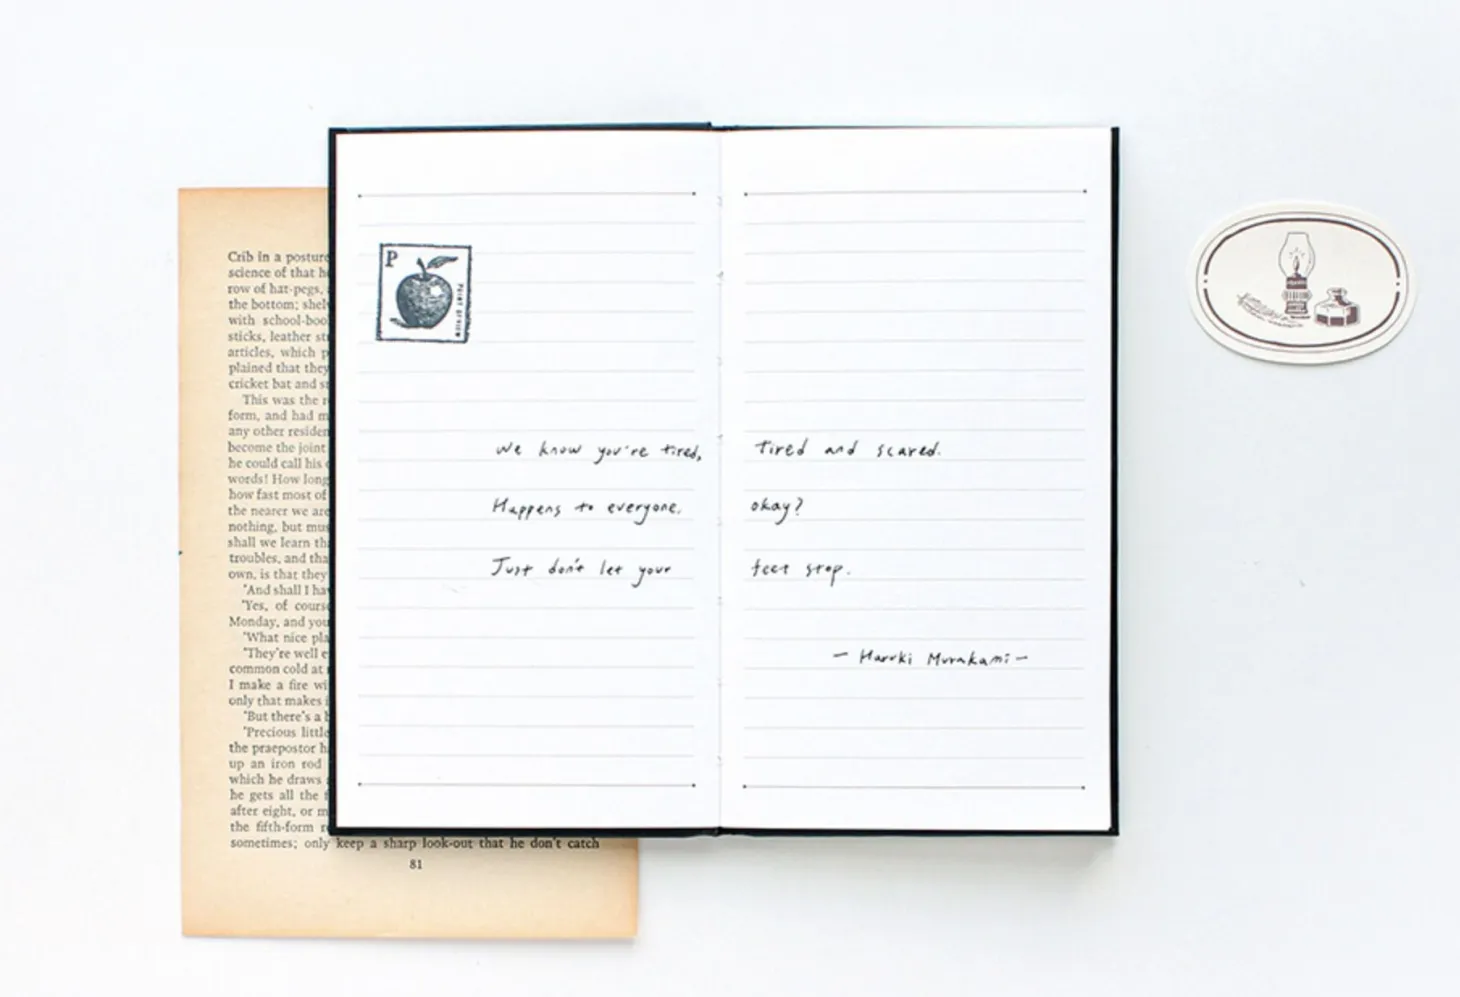 Crib in a posture
science of that he
row of hat-pegs,
the bottom;
with school-boo
sticks, leather
articles, which
plained that they
cricket bat and
This was the
form, and had
any other residen
become the joint
he could call his
words! How long
how fast most of
the nearer we are
nothing, but mus
shall we learn
troubles, and tha
own, is that they
'And shall I
'Yes, of course
Monday, and you
'What nice
'They're well
common cold at
I make a fire
only that makes
'But there's a
'Precious little
the praepostor
up an iron rod
which he draws
he gets all the
after eight, or
the fifth-form
sometimes; only keep a sharp look-out that he don't catch
81
P
We know you're tired, tired and scared.
Happens to everyone, okay?
Just don't let your feet stop.
- Haruki Murakami -